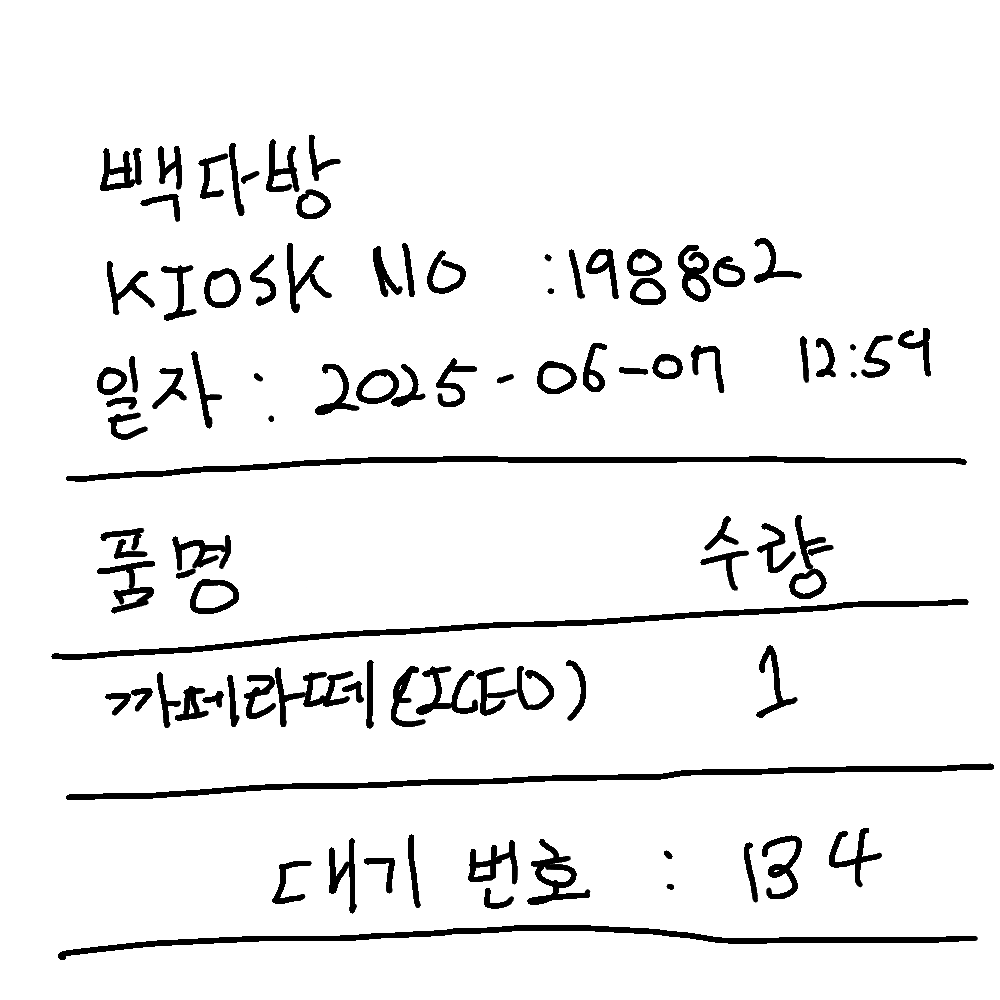 빽다방
KIOSK NO :198802
일자 : 2025-06-07 12:59
품명 수량
까페라떼(ICED) 1
대기 번호 : 134